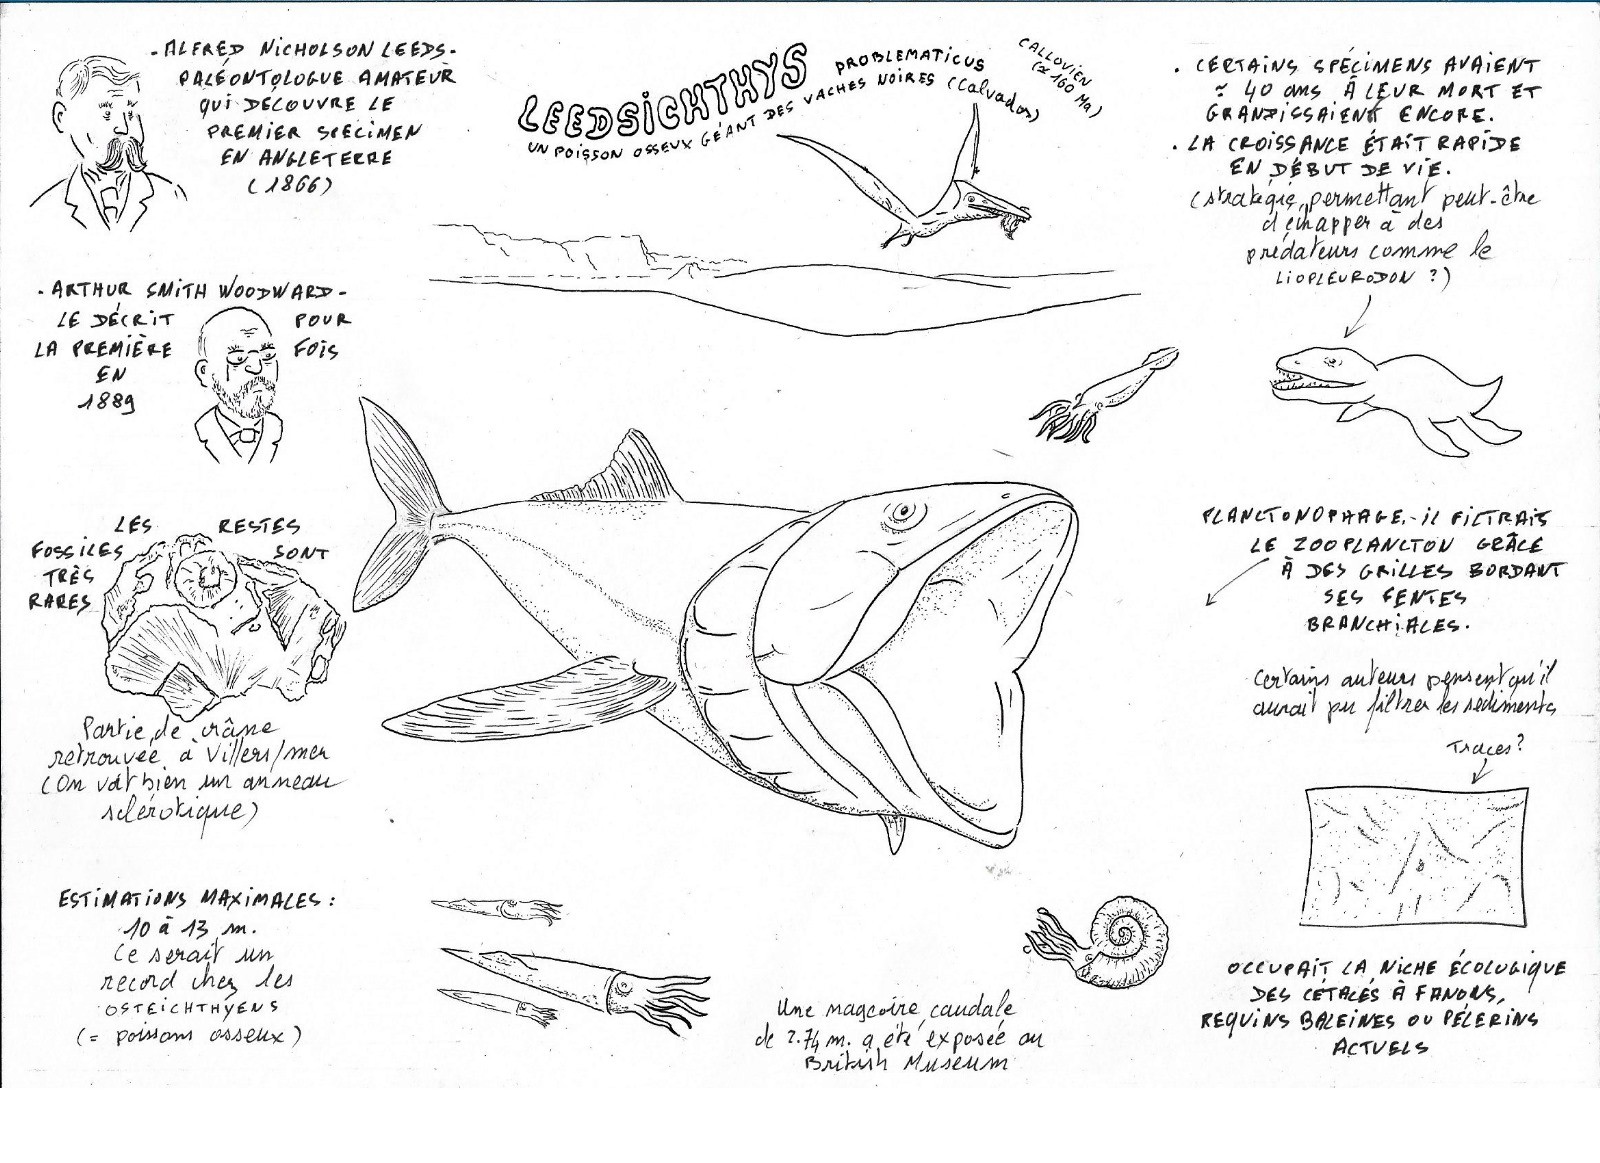 LEEDSICHTHYS PROBLEMATICUS
UN POISSON OSSEUX GÉANT DES VACHES NOIRES (Calvados)
CALLOVIEN
(≈ 160 Ma)
- ALFRED NICHOLSON LEEDS -
PALÉONTOLOGUE AMATEUR
QUI DÉCOUVRE LE
PREMIER SPECIMEN
EN ANGLETERRE
(1866)
- ARTHUR SMITH WOODWARD -
LE DÉCRIT POUR
LA PREMIÈRE FOIS
EN
1889
LES RESTES
FOSSILES SONT
TRÈS
RARES
Partie de crâne
retrouvée à Villers/mer
(On voit bien un anneau
sclérotique)
ESTIMATIONS MAXIMALES :
10 à 13 m.
Ce serait un
record chez les
OSTEICHTHYENS
(= poissons osseux)
Une nageoire caudale
de 2.74 m. a été exposée au
British Museum
. CERTAINS SPÉCIMENS AVAIENT
≈ 40 ans À LEUR MORT ET
GRANDISSAIENT ENCORE.
. LA CROISSANCE ÉTAIT RAPIDE
EN DÉBUT DE VIE.
(stratégie permettant peut-être
d'échapper à des
prédateurs comme le
LIOPLEURODON ?)
PLANCTONOPHAGE - IL FILTRAIT
LE ZOOPLANCTON GRÂCE
À DES GRILLES BORDANT
SES FENTES
BRANCHIALES.
Certains auteurs pensent qu'il
aurait pu filtrer les sédiments
Traces ?
OCCUPAIT LA NICHE ÉCOLOGIQUE
DES CÉTACÉS À FANONS,
REQUINS BALEINES OU PÉLERINS
ACTUELS